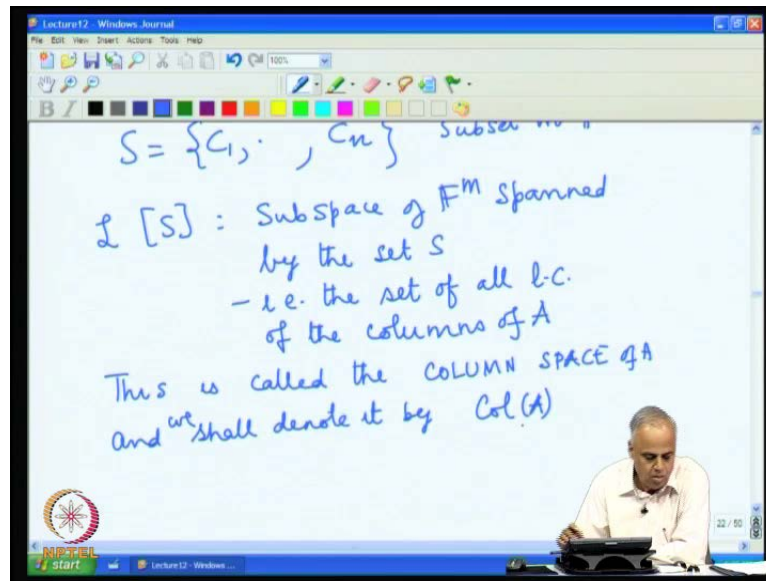 Lecture12 - Windows Journal
File Edit View Insert Actions Tools Help
100%
B I
S = {C1, . , Cn}
L [S] : Subspace of F^m Spanned
by the set S
- i.e. the set of all l.c.
of the columns of A
This is called the COLUMN SPACE of A
and we shall denote it by Col(A)
22 / 50
NPTEL
start Lecture12 - Windows ...